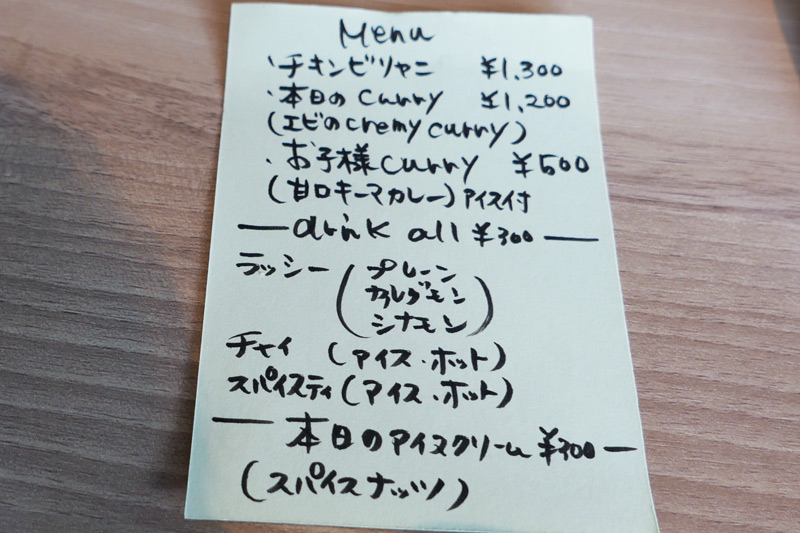 Menu
・チキンビリヤニ ¥1,300
・本日のCurry ¥1,200
(エビのcremy curry)
・お子様curry ¥500
(甘口キーマカレー)アイス付
drink all ¥300
ラッシー(プレーン
カルダモン
シナモン)
チャイ (アイス・ホット)
スパイスティ(アイス・ホット)
本日のアイスクリーム ¥300
(スパイスナッツ)